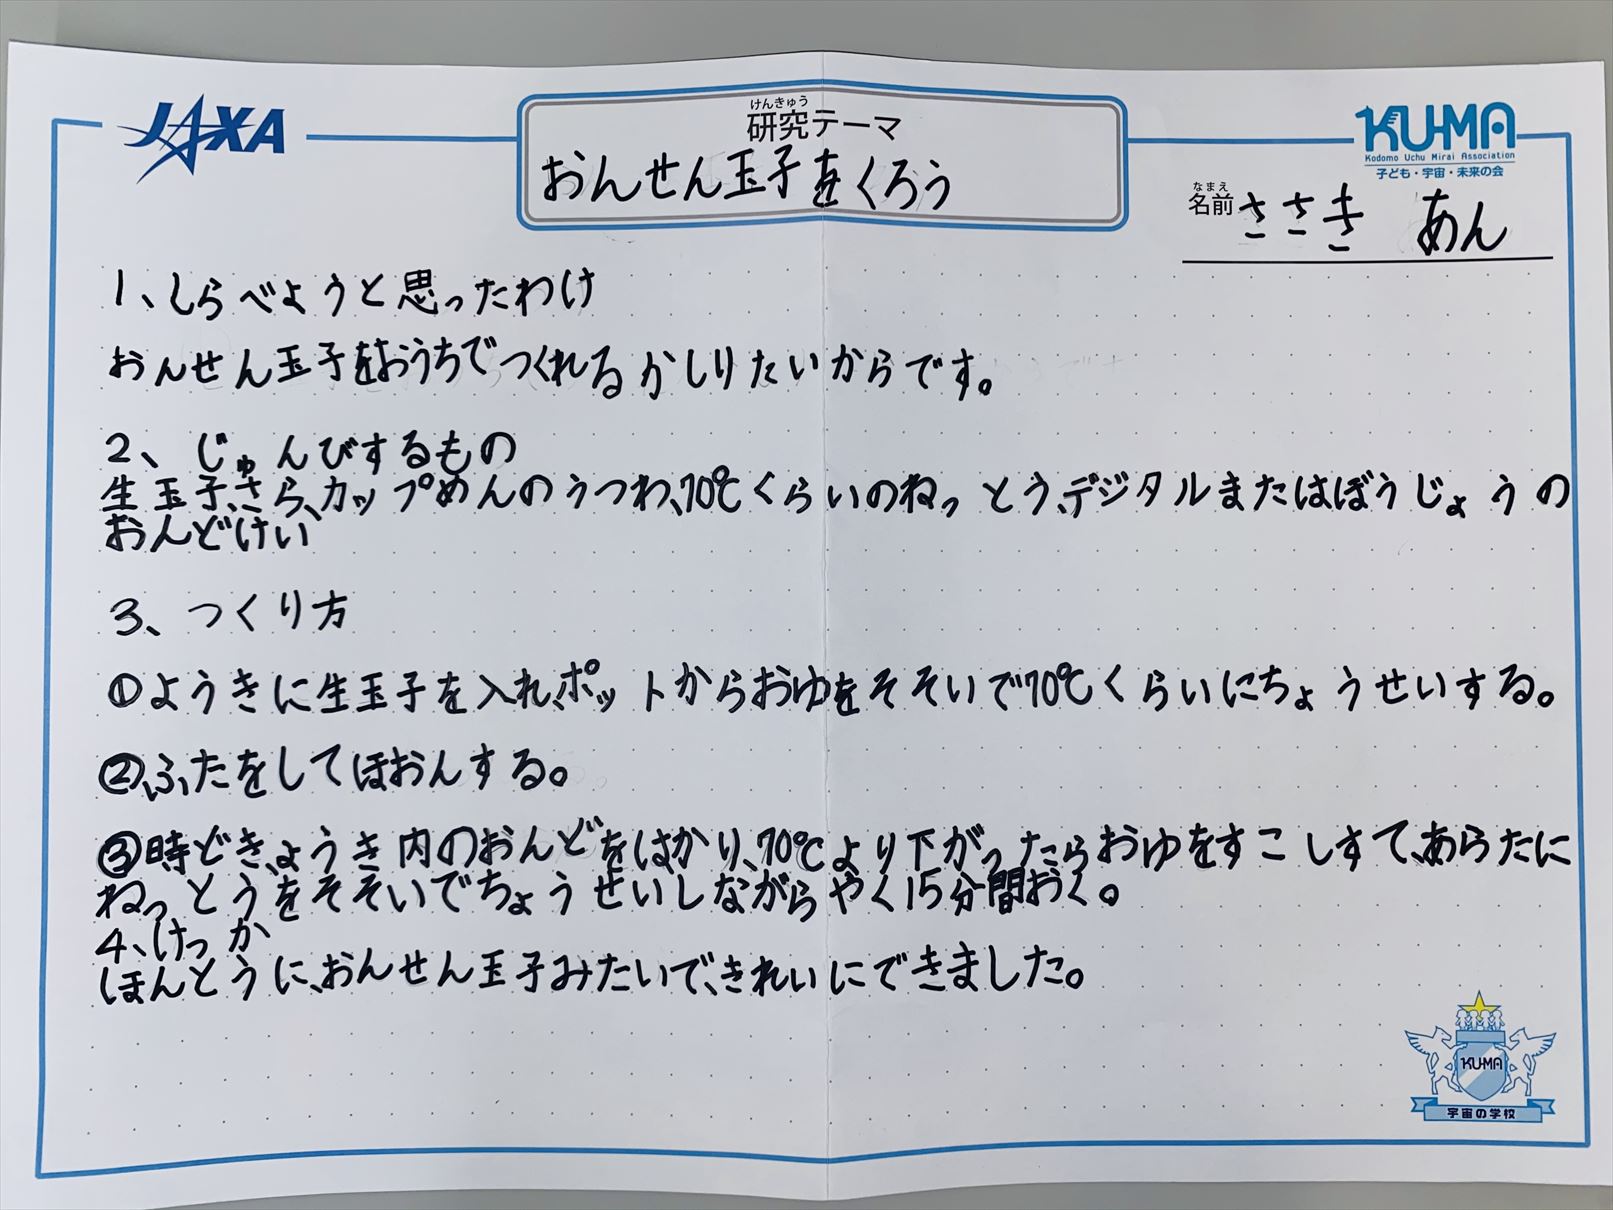 JAXA
けんきゅう
研究テーマ
おんせん玉子をくろう
KU-MA
Kodomo Uchu Mirai Association
子ども・宇宙・未来の会
なまえ
名前 ささき あん
1、しらべようと思ったわけ
おんせん玉子をおうちでつくれるかしりたいからです。
2、じゅんびするもの
生玉子、さら、カップめんのうつわ、70℃くらいのねっとう、デジタルまたはぼうじょうの
おんどけい
3、つくり方
①ようきに生玉子を入れ、ポットからおゆをそそいで70℃くらいにちょうせいする。
②ふたをしてほおんする。
③時どき、ようき内のおんどをはかり、70℃より下がったらおゆをすこしすて、あらたに
ねっとうをそそいでちょうせいしながらやく15分間おく。
4、けっか
ほんとうに、おんせん玉子みたいで、きれいにできました。
KU-MA
宇宙の学校